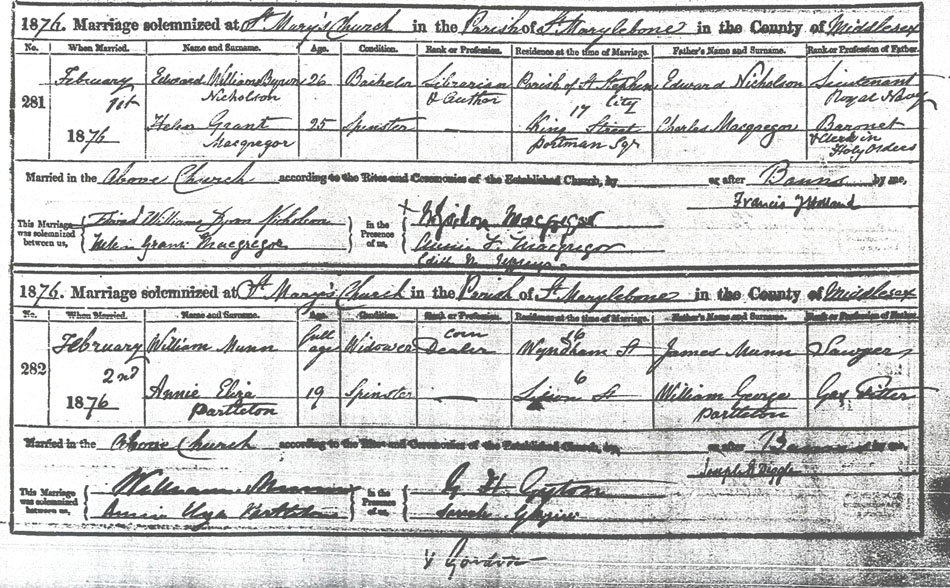 1876. Marriage solemnized at St. Mary's Church in the Parish of St. Marylebone in the County of Middlesex
No. When Married. Name and Surname. Age. Condition. Rank or Profession. Residence at the time of Marriage. Father's Name and Surname. Rank or Profession of Father.
281 February 1st 1876
Edward William Byron Nicholson 26 Bachelor Librarian & Author Parish of St Stephen City Edward Nicholson Lieutenant Royal Navy
Helen Grant Macgregor 25 Spinster — 17 King Street Portman Sqr Charles Macgregor Baronet & Clerk in Holy Orders
Married in the above Church according to the Rites and Ceremonies of the Established Church, by or after Banns by me,
Francis J Holland
This Marriage was solemnized between us, Edward William Byron Nicholson In the Presence of us, Macgregor
Helen Grant Macgregor Annie F. Macgregor
Edith
1876. Marriage solemnized at St. Mary's Church in the Parish of St. Marylebone in the County of Middlesex
No. When Married. Name and Surname. Age. Condition. Rank or Profession. Residence at the time of Marriage. Father's Name and Surname. Rank or Profession of Father.
282 February 2nd 1876
William Munn full age Widower Corn Dealer 56 Wyndham St James Munn Sawyer
Annie Eliza Partleton 19 Spinster — 6 St William George Partleton Gas Fitter
Married in the above Church according to the Rites and Ceremonies of the Established Church, by or after Banns by me,
Joseph R Diggle
This Marriage was solemnized between us, William Munn In the Presence of us, G H Gyton
Annie Eliza Partleton Sarah
x Gordon